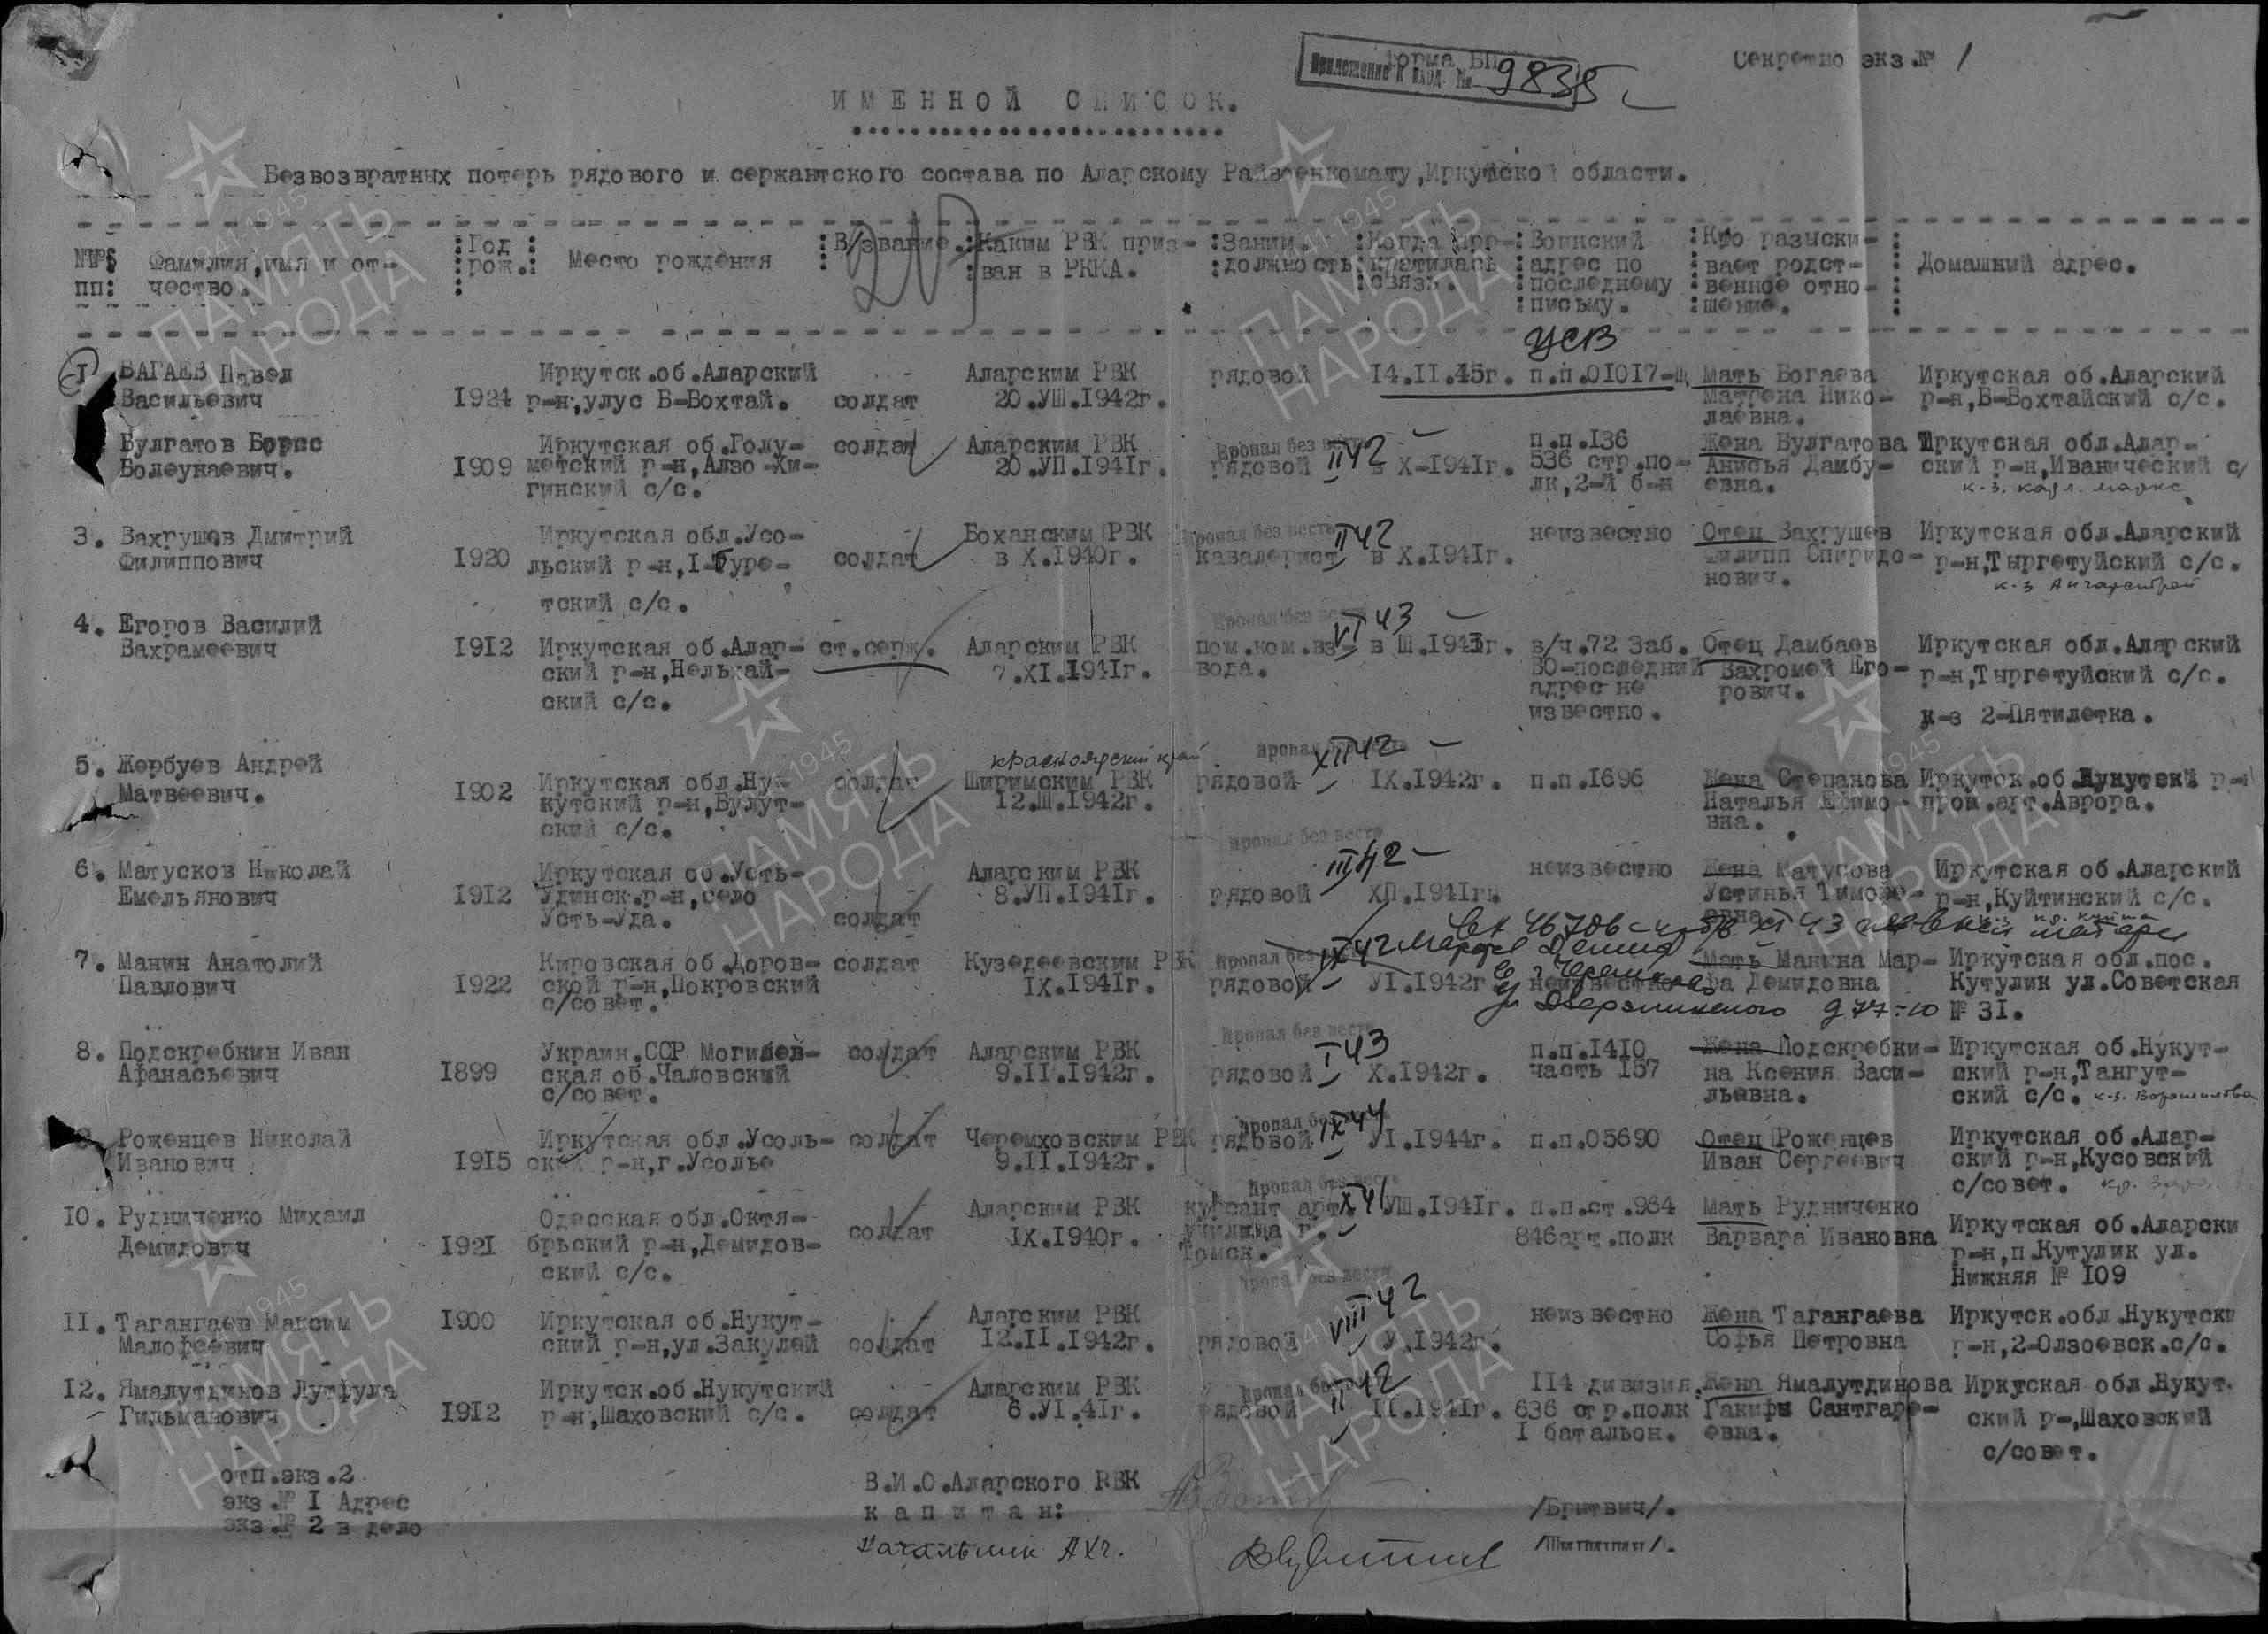 Секретно экз.№ 1
Форма БП
Приложение к вход. № 9835
ИМЕННОЙ СПИСОК.
Безвозвратных потерь рядового и сержантского состава по Аларскому Райвоенкомату,Иркутской области.
№№ пп: Фамилия,имя и отчество. :Год рож.: Место рождения :В/звание. :Каким РВК призван в РККА. :Заним. должность :Когда прекратилась связь. :Воинский адрес по последнему письму. :Кто разыскивает родственное отношение. : Домашний адрес.
УСВ
I БАГАЕВ Павел Иркутск.об.Аларский Аларским РВК рядовой 14.II.45г. п.п.01017-Щ Мать Богаева Иркутская об.Аларский
Васильевич 1924 р-н,улус Б-Бохтай. солдат 20.УШ.1942г. Матрена Нико- р-н,Б-Бохтайский с/с.
лаевна.
Булгатов Борис Иркутская об.Голу- солдат Аларским РВК Пропал без вести II 42 п.п.136 Жена Булгатова Иркутская обл.Алар-
Болеунаевич. 1909 метский р-н,Алзо-Хи- 20.УП.1941г. рядовой X-1941г. 536 стр.по- Анисья Дамбу- ский р-н,Иванический с/
гинский с/с. лк,2-й б-н евна. к-з. карл. маркс
3. Вахрушов Дмитрий Иркутская обл.Усо- Боханским РВК Пропал без вести II 42 неизвестно Отец Вахрушев Иркутская обл.Аларский
Филиппович 1920 льский р-н,I-Буре- солдат в X.1940г. кавалерист в X.1941г. Филипп Спиридо- р-н,Тыргетуйский с/с.
тский с/с. нович. к-з Ангарстрой
4. Егоров Василий Пропал без вести VI 43
Вахрамеевич 1912 Иркутская об.Алар- ст.серж. Аларским РВК пом.ком.вз- в Ш.1943г. в/ч.72 Заб. Отец Дамбаев Иркутская обл.Аларский
ский р-н,Нельхай- 7.XI.1941г. вода. ВО-последний Вахромей Его- р-н,Тыргетуйский с/с.
ский с/с. адрес не рович.
известно. к-з 2-Пятилетка.
5. Жербуев Андрей красноярский край Пропал без вести XII 42
Матвеевич. 1902 Иркутская обл.Ну- солдат Ширимским РВК рядовой IX.1942г. п.п.1696 Жена Степанова Иркутск.об.Нукутский р-н
кутский р-н,Булут- 12.Ш.1942г. Наталья Ефимо- пром.арт.Аврора.
ский с/с. вна.
6. Матусков Николай Иркутская об.Усть- Аларским РВК Пропал без вести III 42 неизвестно Жена Матусова Иркутская об.Аларский
Емельянович 1912 Удинск.р-н,село 8.УП.1941г. рядовой ХП.1941г. Устинья Тимофе- р-н,Куйтинский с/с.
Усть-Уда. солдат евна
7. Манин Анатолий Кировская об.Доров- солдат Кузедеевским РВК Пропал без вести IX 42 Мать Манина Мар- Иркутская обл.пос.
Павлович 1922 ской р-н,Покровский IX.1941г. рядовой УI.1942г. неизвестно фа Демидовна Кутулик ул.Советская
с/совет. Дзержинского № 31.
8. Подскребкин Иван Украин.ССР Могилев- солдат Аларским РВК Пропал без вести I 43 п.п.1410 Жена Подскребки- Иркутская об.Нукут-
Афанасьевич 1899 ская об.Чаловский 9.II.1942г. рядовой X.1942г. часть 157 на Ксения Васи- ский р-н,Тангут-
с/совет. льевна. ский с/с. к-з. Ворошилова
9. Роженцев Николай Иркутская обл.Усоль- солдат Черемховским РВК Пропал без вести IX 44 рядовой УI.1944г. п.п.05690 Отец Роженцев Иркутская об.Алар-
Иванович 1915 ский р-н,г.Усолье 9.II.1942г. Иван Сергеевич ский р-н,Кусовский
с/совет.
10. Рудниченко Михаил Одесская обл.Октя- Аларским РВК Пропал без вести X 41 курсант арт. УШ.1941г. п.п.ст.964 Мать Рудниченко Иркутская об.Аларски
Демидович 1921 брьский р-н,Демидов- солдат IX.1940г. училища г. 846арт.полк Варвара Ивановна р-н,п.Кутулик ул.
ский с/с. Томск. Нижняя № 109
11. Тагангаев Максим 1900 Иркутская об.Нукут- Аларским РВК Пропал без вести VIII 42 неизвестно Жена Тагангаева Иркутск.обл.Нукутски
Малофеевич ский р-н,ул.Закулей солдат 12.II.1942г. рядовой У.1942г. Софья Петровна р-н,2-Олзоевск.с/с.
12. Ямалутдинов Лутфула Иркутск.об.Нукутский Аларским РВК Пропал без вести II 42 114 дивизия. Жена Ямалутдинова Иркутская обл.Нукут.
Гильманович 1912 р-н,Шаховский с/с. солдат 6.УI.41г. рядовой II.1941г. 636 стр.полк Гакифы Сантгаре- ский р-,Шаховский
I батальон. евна. с/совет.
отп.экз.2
экз.№ 1 Адрес
экз.№ 2 в дело
В.И.О.Аларского РВК
капитан: /Бритвич/.
Начальник АХч.
ПАМЯТЬ НАРОДА
1941-1945